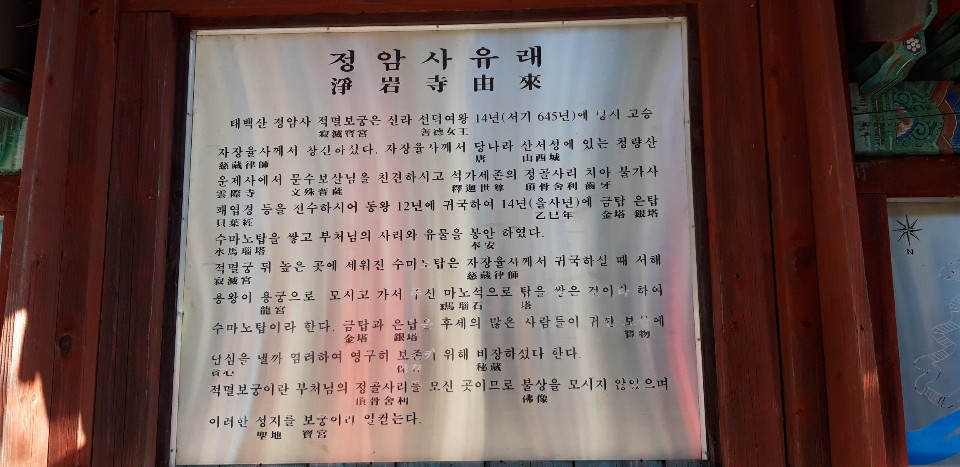 정암사유래
淨岩寺由來
태백산 정암사 적멸보궁은 신라 선덕여왕 14년(서기 645년)에 당시 고승
寂滅寶宮 善德女王
자장율사께서 창건하셨다. 자장율사께서 당나라 산서성에 있는 청량산
慈藏律師 唐 山西城
운제사에서 문수보산님을 친견하시고 석가세존의 정골사리 치아 불가사
雲際寺 文殊菩薩 釋迦世尊 頂骨舍利 齒牙
패엽경 등을 전수하시어 동왕 12년에 귀국하여 14년(을사년)에 금탑 은탑
貝葉經 乙巳年 金塔 銀塔
수마노탑을 쌓고 부처님의 사리와 유물을 봉안 하였다.
水馬瑙塔 奉安
적멸궁 뒤 높은 곳에 세워진 수마노탑은 자장율사께서 귀국하실 때 서해
寂滅宮 慈藏律師
용왕이 용궁으로 모시고 가서 주신 마노석으로 탑을 쌓은 것이라 하여
龍宮 馬瑙石 塔
수마노탑이라 한다. 금탑과 은탑은 후세의 많은 사람들이 귀한 보물에
金塔 銀塔 寶物
탐심을 낼까 염려하여 영구히 보존키 위해 비장하셨다 한다.
貪心 保存 秘藏
적멸보궁이란 부처님의 정골사리를 모신 곳이므로 불상을 모시지 않았으며
頂骨舍利 佛像
이러한 성지를 보궁이라 일컫는다.
聖地 寶宮
N